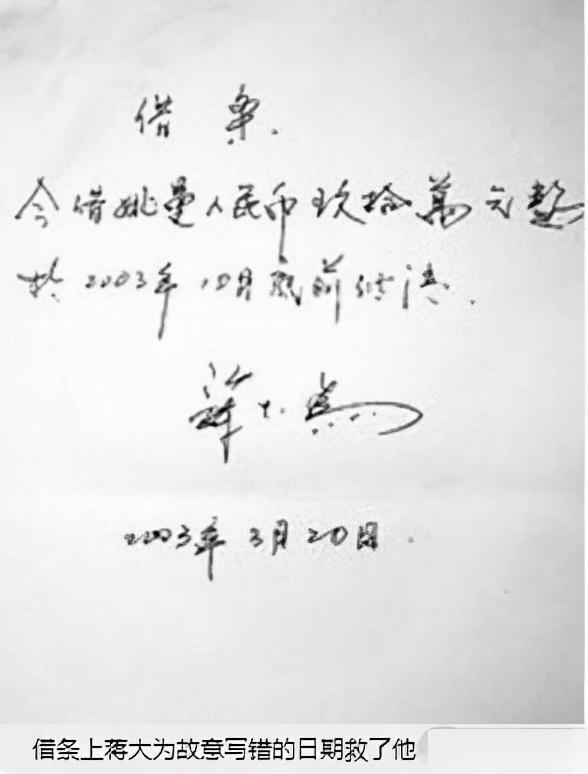 借条.
今借姚曼人民币玖拾萬元整
于2003年10月底前付清.
蒋大为
2003年3月20日.
借条上蒋大为故意写错的日期救了他